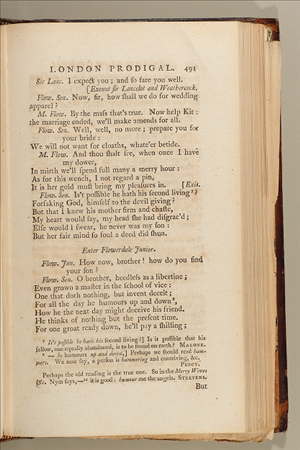 LONDON PRODIGAL. 491
Sir Lanc. I expect you; and so fare you well.
[Exeunt sir Lancelot and Weathercock.
Flow. Sen. Now, sir, how shall we do for wedding
apparel?
M. Flow. By the mass that's true. Now help Kit:
the marriage ended, we'll make amends for all.
Flow. Sen. Well, well, no more; prepare you for
your bride:
We will not want for cloaths, whate'er betide.
M. Flow. And thou shalt see, when once I have
my dower,
In mirth we'll spend full many a merry hour:
As for this wench, I not regard a pin,
It is her gold must bring my pleasures in. [Exit.
Flow. Sen. Is't possible he hath his second living¹?
Forsaking God, himself to the devil giving?
But that I knew his mother firm and chaste,
My heart would say, my head she had disgrac'd;
Else would I swear, he never was my son:
But her fair mind so foul a deed did shun.
Enter Flowerdale Junior.
Flow. Jun. How now, brother! how do you find
your son?
Flow. Sen. O brother, heedless as a libertine;
Even grown a master in the school of vice:
One that doth nothing, but invent deceit;
For all the day he humours up and down²,
How he the next day might deceive his friend.
He thinks of nothing but the present time.
For one groat ready down, he'll pay a shilling;
¹ It's possible he hath his second living?] Is it possible that his
fellow, one equally abandoned, is to be found on earth? MALONE.
² — he humours up and down,] Perhaps we should read ham-
mers. We now say, a person is hammering and contriving, &c.
PERCY.
Perhaps the old reading is the true one. So in the Merry Wives
&c. Nym says,—"it is good: humour me the angels. STEEVENS.
But